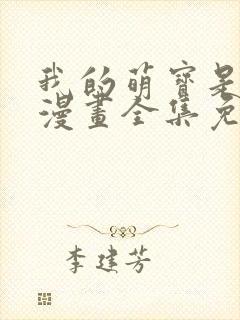 我的萌寶是
漫畫全集免
李建芳